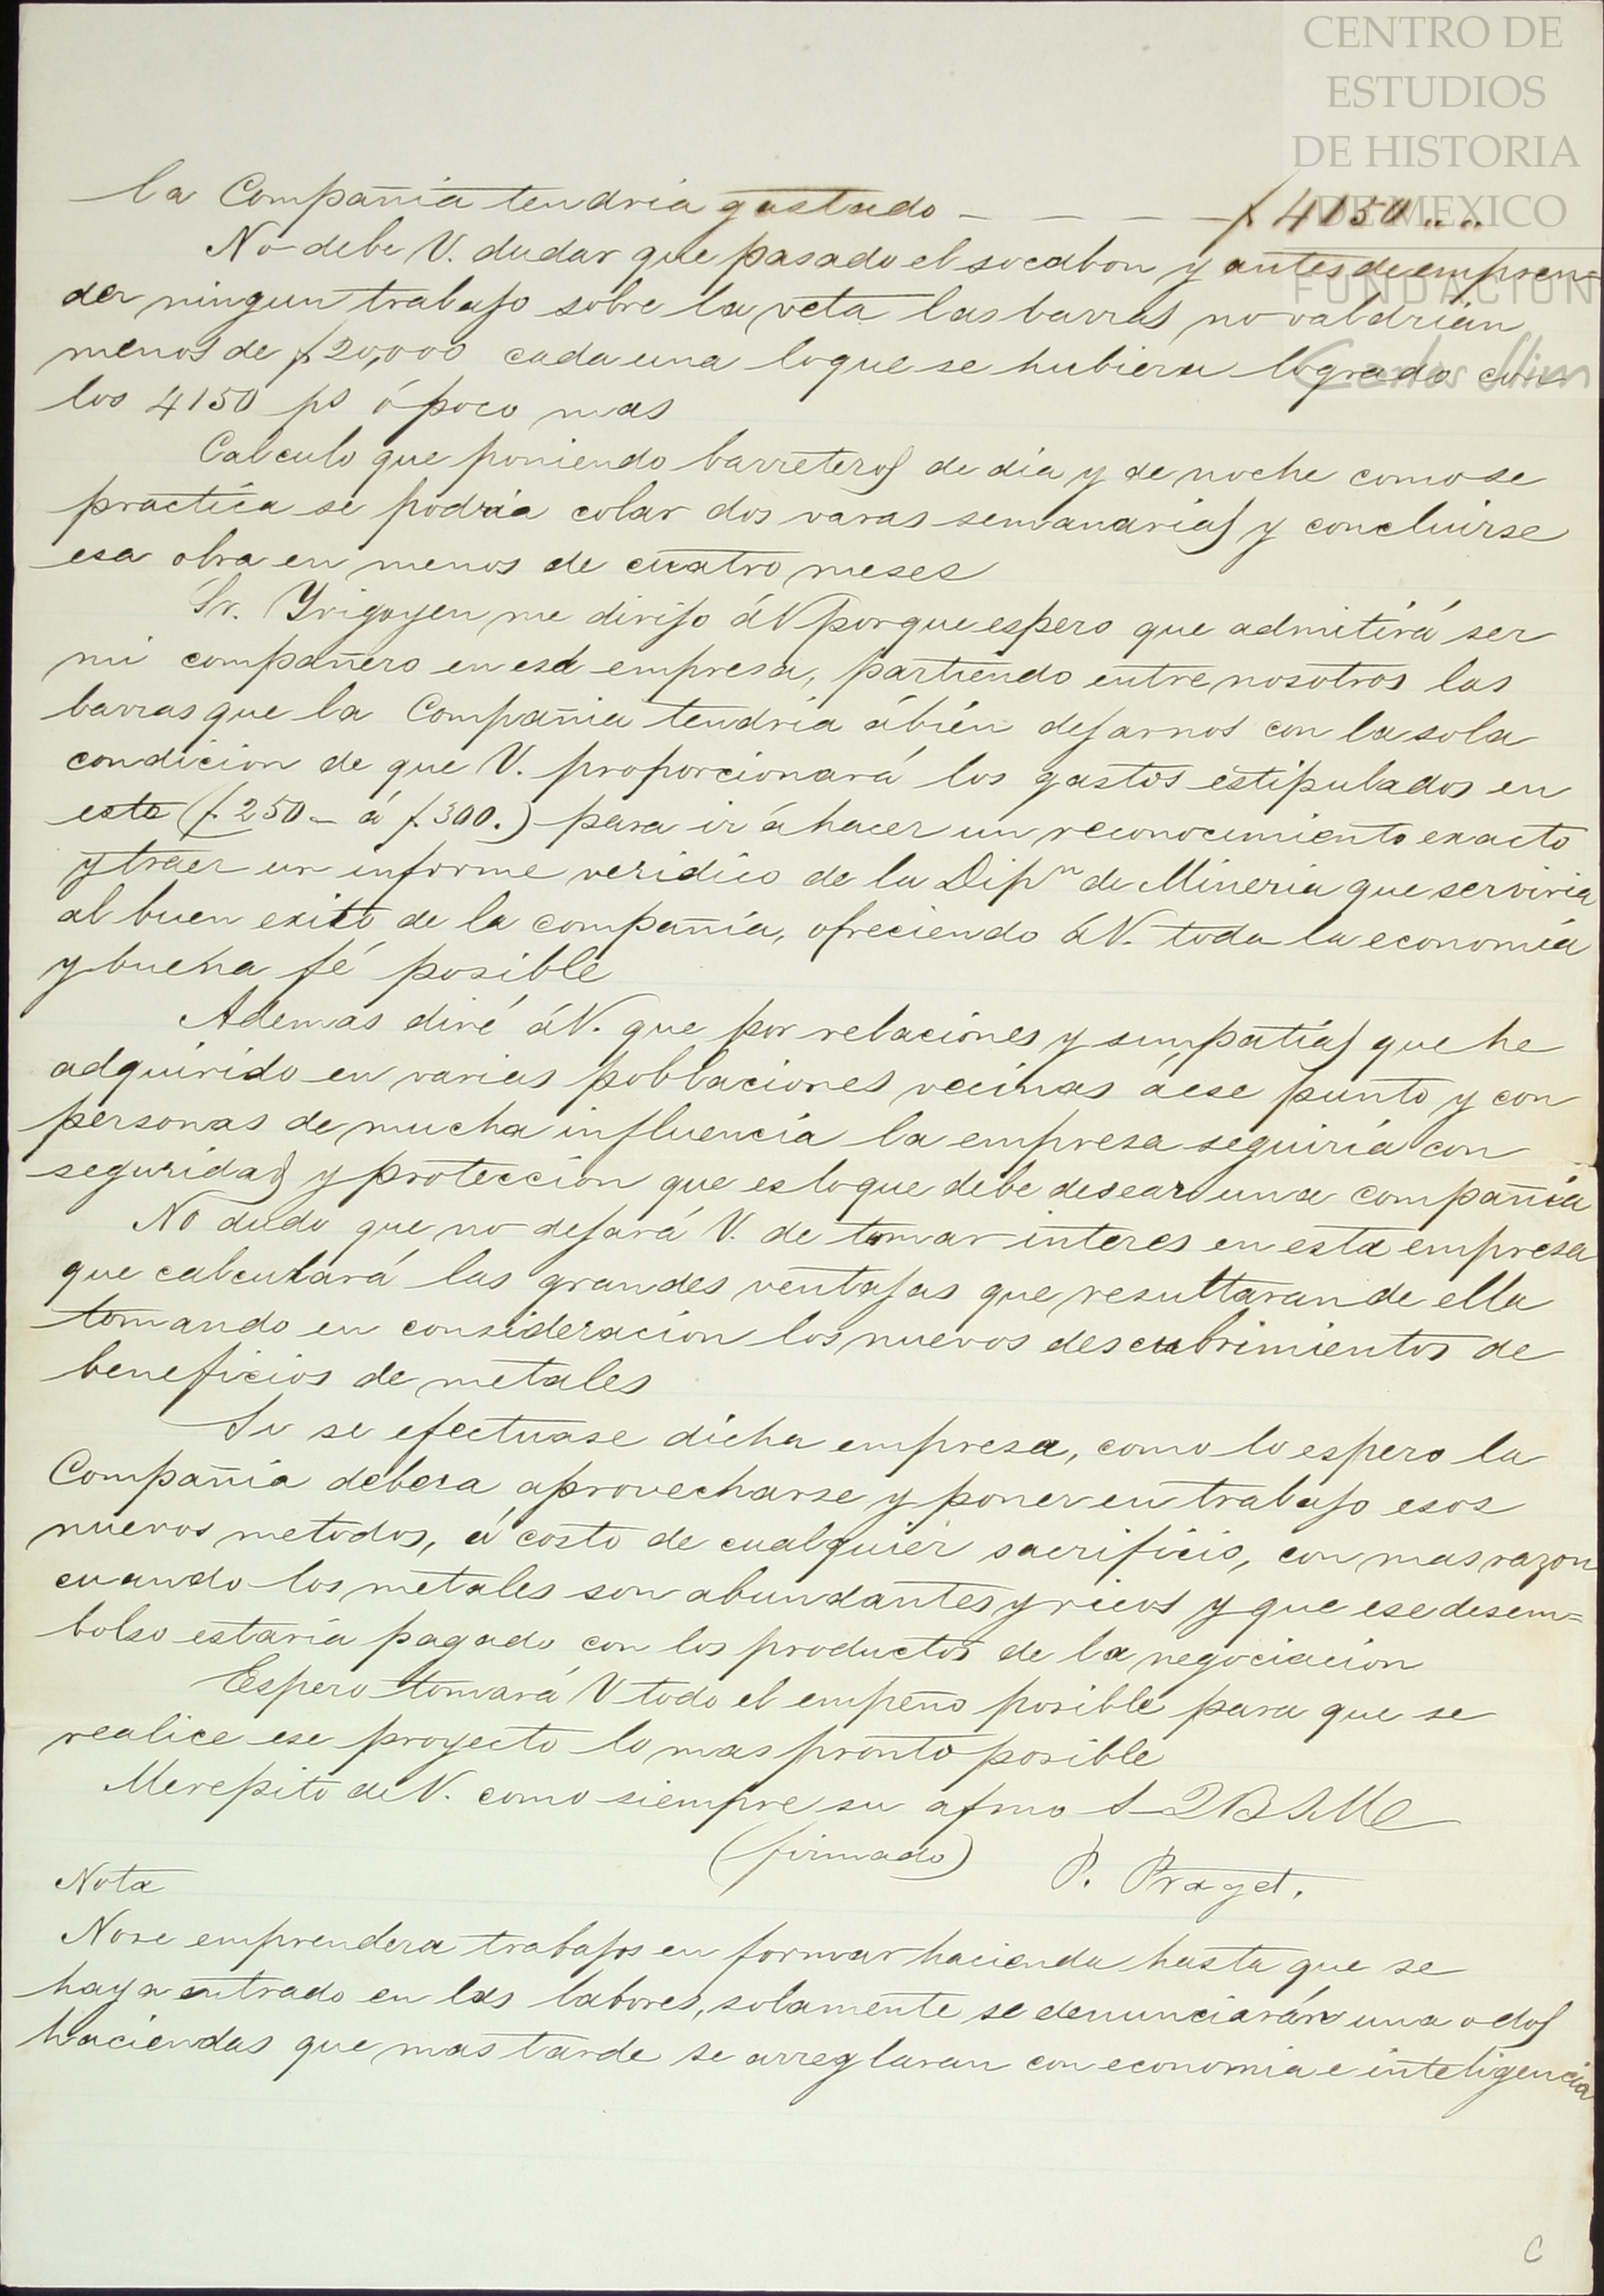 CENTRO DE
ESTUDIOS
DE HISTORIA
DE MEXICO
FUNDACION
Carlos Slim
la Compañia tendria gastado - - - - - $ 4150 "..
No debe V. dudar que pasado el socabon y antes de empren=
der ningun trabajo sobre la veta las barras no valdrian
menos de $20,000 cada una lo que se hubiera logrado con
los 4150 ps ó poco mas
Calculo que poniendo barreteros de dia y de noche como se
practica se podria colar dos varas semanarias y concluirse
esa obra en menos de cuatro meses
Sr. Yrigoyen me dirijo á V porque espero que admitirá ser
mi compañero en esa empresa, partiendo entre nosotros las
barras que la Compañia tendria á bién dejarnos con la sola
condicion de que V. proporcionará los gastos estipulados en
esta ($. 250 - á $. 300.) para ir á hacer un reconocimiento exacto
y traer un informe veridico de la Dipn de Mineria que serviria
al buen exito de la compañía, ofreciendo á V. toda la economía
y buena fé posible
Ademas diré á V. que por relaciones y simpatias que he
adquirido en varias poblaciones vecinas á ese punto y con
personas de mucha influencia la empresa seguiria con
seguridad y protección que es lo que debe desear una compañia
No dudo que no dejará V. de tomar interes en esta empresa
que calculará las grandes ventajas que resultaran de ella
tomando en consideracion los nuevos descubrimientos de
beneficios de metales
Si se efectuase dicha empresa, como lo espero la
Compañia debera aprovecharse y poner en trabajo esos
nuevos metodos, á costo de cualquier sacrificio, con mas razon
cuando los metales son abundantes y ricos y que ese desem=
bolso estaria pagado con los productos de la negociacion
Espero tomará V todo el empeño posible para que se
realice ese proyecto lo mas pronto posible
Me repito de V. como siempre su afmo S Q B S M
(firmado) P. Praget.
Nota
No se emprendera trabajos en formar hacienda hasta que se
haya entrado en las labores, solamente se denunciarán una o dos
haciendas que mas tarde se arreglaran con economia e inteligencia
C